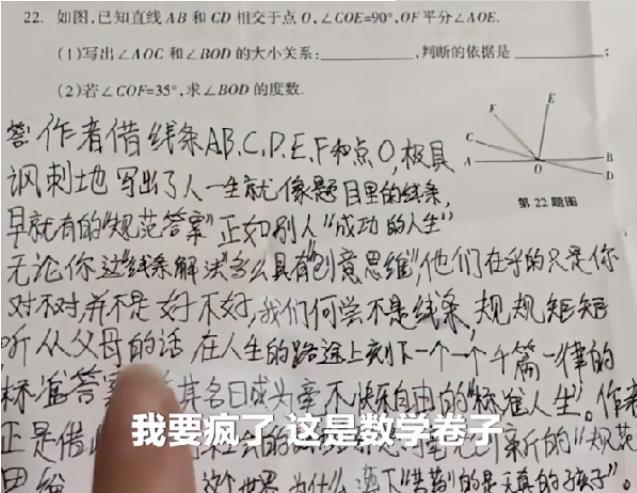 22. 如图,已知直线AB和CD相交于点O,∠COE=90°,OF平分∠AOE.
(1)写出∠AOC和∠BOD的大小关系:__________,判断的依据是__________;
(2)若∠COF=35°,求∠BOD的度数.
E
F
C
A
O
B
D
第22题图
答:作者借线条AB、C、D、E、F和点O,极具
讽刺地写出了人一生就像题目里的线条,
早就有的“规范答案”正如别人“成功的人生”
无论你这“线条解法”多么具有“创意思维”,他们在乎的只是你
对不对,并不是好不好,我们何尝不是线条,规规矩矩
听从父母的话在人生的路途上刻下一个一个千篇一律的
标准答案 其名曰成为毫不快乐自由的“标准人生”。作者
正是借 社会的 新的“规范
思维 这个世界为什么 的是天真的孩子”。
我要疯了 这是数学卷子